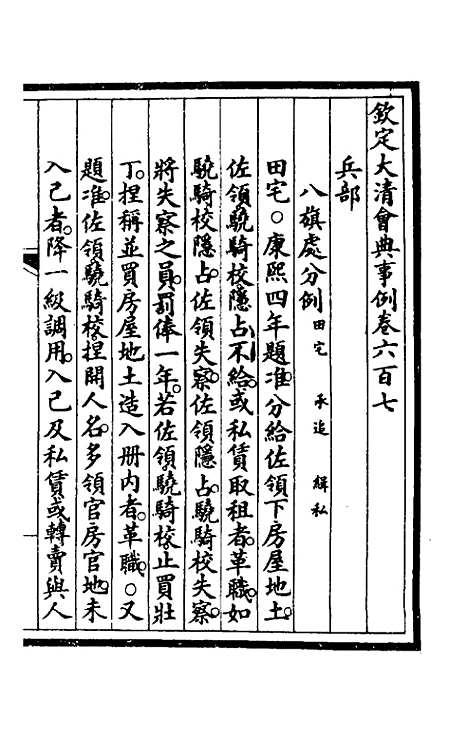 欽定大清會典事例卷六百七
兵部
八旗處分例 田宅 承追 緝私
田宅○康熙四年題准分給佐領下房屋地土。
佐領驍騎校隱占不給。或私賃取租者。革職。如
驍騎校隱占。佐領失察。佐領隱占。驍騎校失察。
將失察之員。罰俸一年。若佐領驍騎校止買壯
丁。捏稱並買房屋地土造入册內者。革職。○又
題准。佐領驍騎校。捏開人名。多領官房官地。未
入己者。降一級調用。入己及私賃或轉賣與人